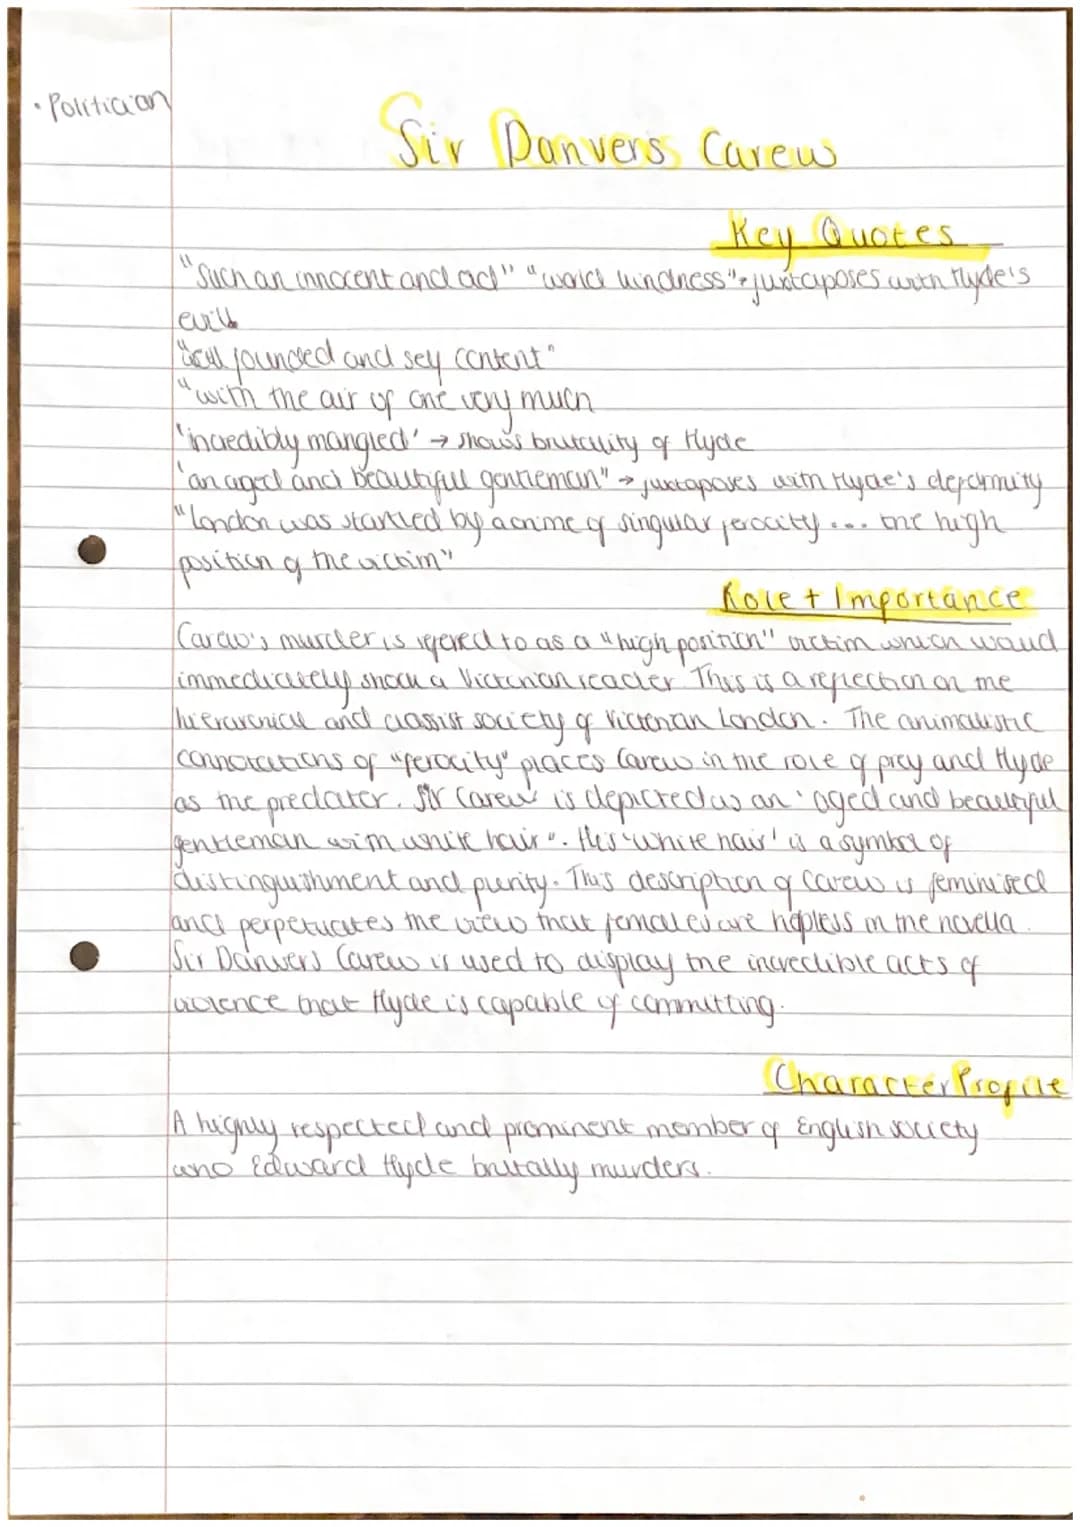 • Politician
Sir Danvers Carew
Key Quotes
"Such an innocent and " " kindness" → juxtaposes with Hyde's
evil
"well founded and self content"
"with the air of one very much
'incredibly mangled' → shows brutality of Hyde
'an aged and beautiful gentleman" → juxtaposes with Hyde's deformity
"London was startled by a crime of singular ferocity ... the high
position of the victim"
Role + Importance
Carew's murder is refered to as a "high position" victim which would
immediately shock a Victorian reader. This is a reflection on the
hierarchical and classist society of Victorian London. The animalistic
connotations of "ferocity" places Carew in the role of prey and Hyde
as the predater. Sir Carew is depicted as an 'aged and beautiful
gentleman with white hair". His 'white hair' is a symbol of
distinguishment and purity. This description of Carew is feminised
and perpetuates the view that females are hopless in the novella.
Sir Danvers Carew is used to display the incredible acts of
violence that Hyde is capable of committing.
Character Profile
A highly respected and prominent member of English society
who Edward Hyde brutally murders.